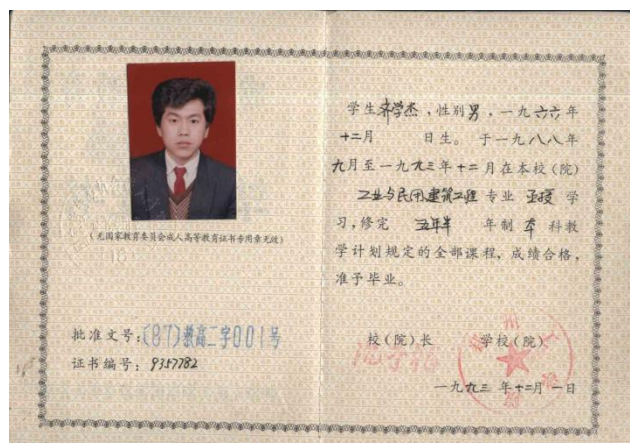 (无国家教育委员会成人高等教育证书专用章无效)
批准文号:(87)教高二字001号
证书编号:9357782
学生齐学杰,性别男,一九六六年
十二月 日生。于一九八八年
九月至一九九三年十二月在本校(院)
工业与民用建筑工程专业 函授 学
习,修完 五年半 年制 本 科教
学计划规定的全部课程,成绩合格,
准予毕业。
校(院)长 学校(院)
一九九三年十二月一日